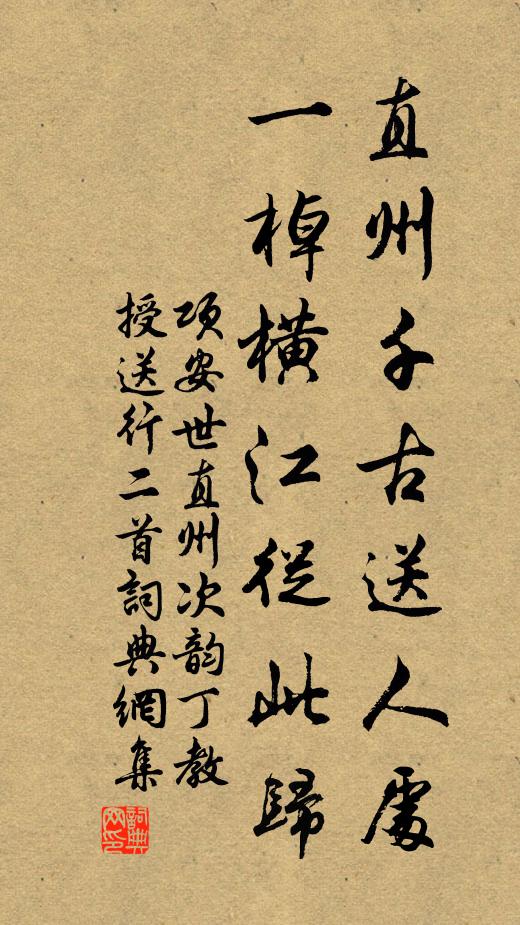 直州千古送人處
一棹橫江從此歸
項安世直州次韵丁教
授送行二首詞典網集
詞典
网印